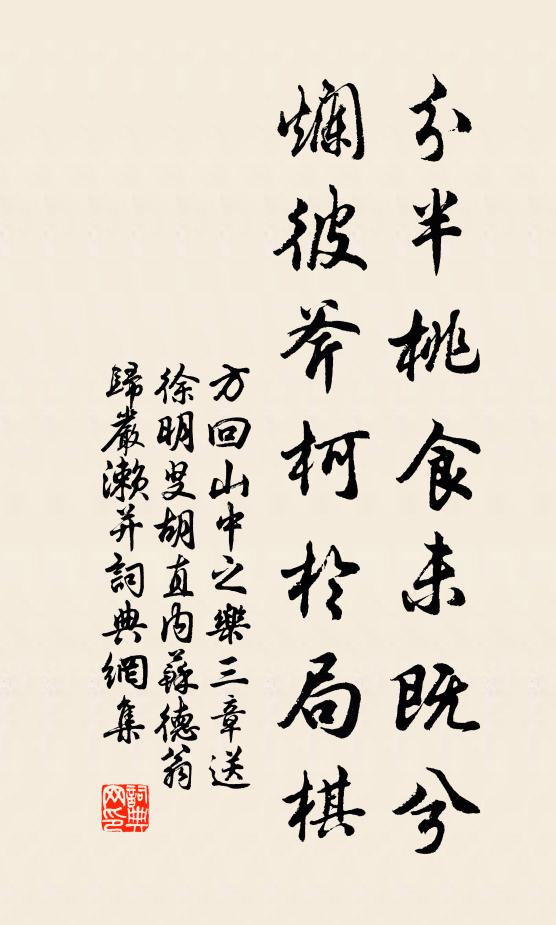 分半桃食未既兮
爛彼斧柯於局棋
方回山中之樂三章送
徐明叟胡直内蘇德翁
歸嚴瀨并詞典網集
詞典网印